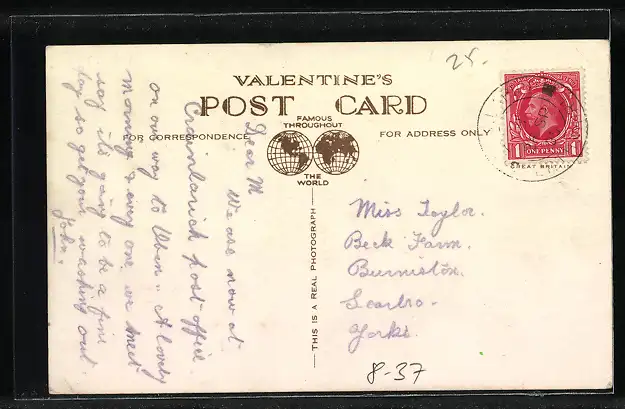 25.
VALENTINE'S
POST CARD
FAMOUS
THROUGHOUT
THE
WORLD
FOR CORRESPONDENCE
FOR ADDRESS ONLY
1 ONE PENNY 1
GREAT BRITAIN
THIS IS A REAL PHOTOGRAPH
Dear M
We are now at
Crainlarich post-office
on our way to Oban. A lovely
morning & every one we meet
say it's going to be a fine
day so get your washing out.
John.
Miss Taylor.
Beck Farm.
Burniston.
Scarbro-
Yorks.
8-37